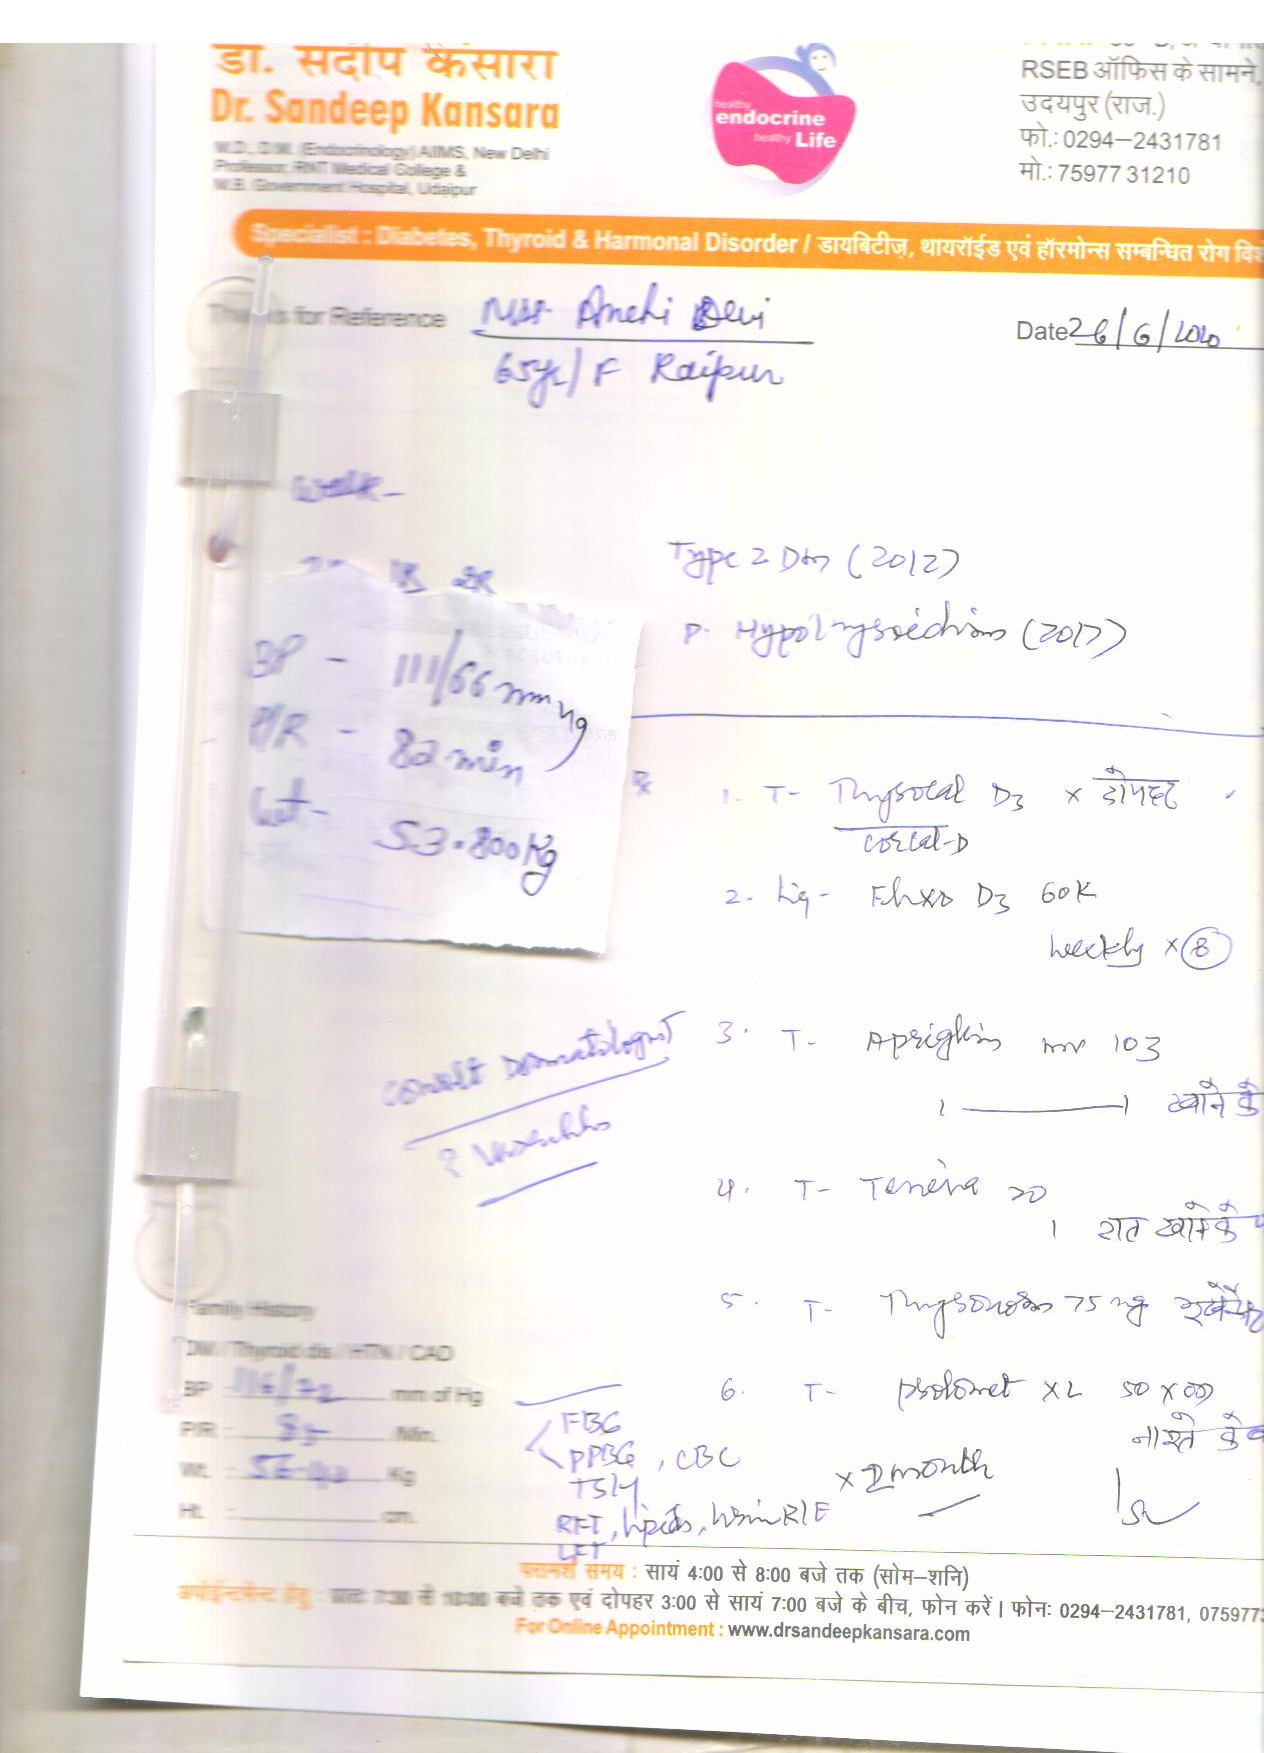 डॉ. संदीप कंसारा
Dr. Sandeep Kansara
M.D., D.M. (Endocrinology) AIIMS, New Delhi
Professor, RNT Medical College &
M.B. Government Hospital, Udaipur
healthy
endocrine
healthy Life
RSEB ऑफिस के सामने,
उदयपुर (राज.)
फो.: 0294–2431781
मो.: 75977 31210
Specialist : Diabetes, Thyroid & Harmonal Disorder / डायबिटीज़, थायरॉईड एवं हॉरमोन्स सम्बन्धित रोग विशे
Thanks for Reference
Devi
65yr/ F Raipur
Date 26/6/2020
Walk-
BP - 111/66 mm Hg
P/R - 82 min
Wt- 53.800 Kg
Type 2 Dm (2012)
P. Hypothyroidism (2017)
Rx
1. T- D3 x दोपहर
Corcal-D
2. Liq- D3 60K
Weekly x 8
3. T- Apriglim mv 103
1 ——— 1 खाने के
4. T- Teneiva 20
1 रात खाने के
5. T- Thyronorm 75 mg
6. T- Prolomet XL 50 x
नाश्ते के
x 2 month
Consult Dermatologist
?
Family History
DM / Thyroid dis / HTN / CAD
BP 116/72 mm of Hg
P/R : Min.
Wt. : Kg
Ht. : cm.
FBG
PPBG, CBC
TSH
RFT, lipids, Urine R/E
LFT
परामर्श समय : सायं 4:00 से 8:00 बजे तक (सोम–शनि)
अपोईन्टमेन्ट हेतु : प्रातः 7:30 से 10:00 बजे तक एवं दोपहर 3:00 से सायं 7:00 बजे के बीच, फोन करें। फोनः 0294–2431781, 075977
For Online Appointment : www.drsandeepkansara.com